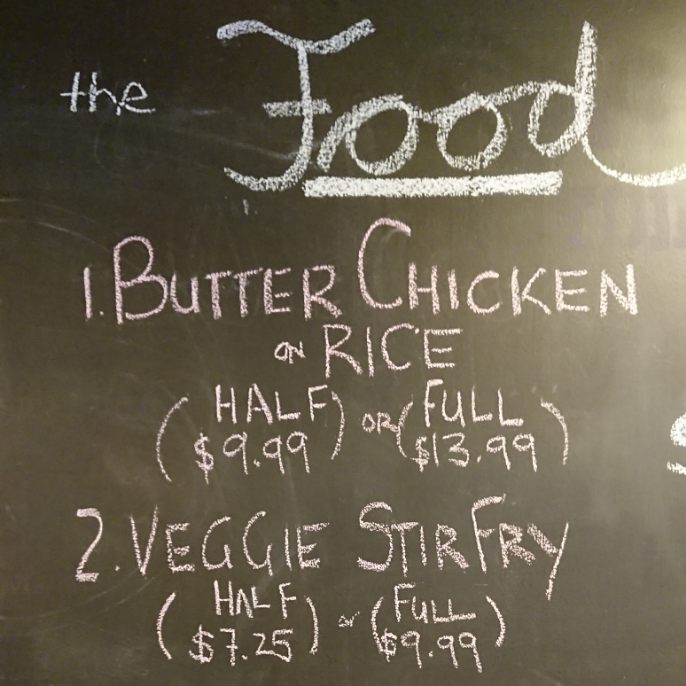 the Food
1. BUTTER CHICKEN
ON RICE
(HALF) OR (FULL)
($9.99) ($13.99)
2. VEGGIE STIR FRY
(HALF) or (FULL)
($7.25) ($9.99)